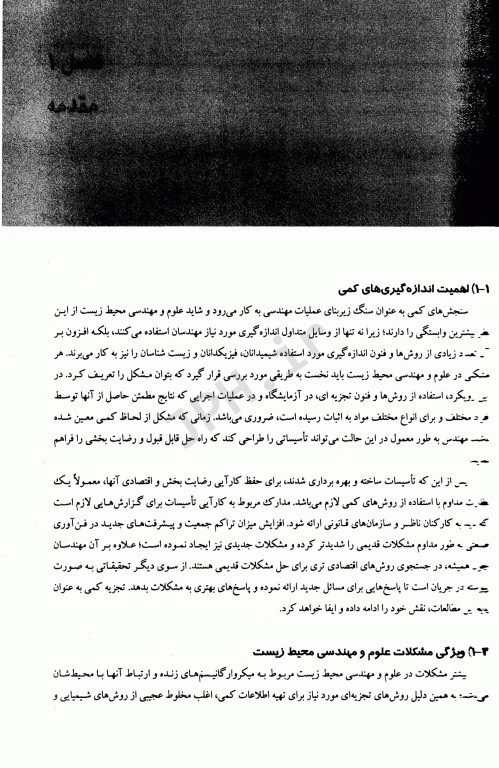 فصل ۱
مقدمه
۱-۱) اهمیت اندازه‌گیری‌های کمی
سنجش‌های کمی به عنوان سنگ زیربنای عملیات مهندسی به کار می‌رود و شاید علوم و مهندسی محیط زیست از این
بیشترین وابستگی را دارند؛ زیرا نه تنها از وسایل متداول اندازه‌گیری مورد نیاز مهندسان استفاده می‌کنند، بلکه افزون بر
تعداد زیادی از روش‌ها و فنون اندازه‌گیری مورد استفاده شیمیدانان، فیزیکدانان و زیست شناسان را نیز به کار می‌برند. هر
مشکلی در علوم و مهندسی محیط زیست باید نخست به طریقی مورد بررسی قرار گیرد که بتوان مشکل را تعریف کرد. در
رویکرد، استفاده از روش‌ها و فنون تجزیه ای، در آزمایشگاه و در عملیات اجرایی که نتایج مطمئن حاصل از آنها توسط
مختلف و برای انواع مختلف مواد به اثبات رسیده است، ضروری می‌باشد. زمانی که مشکل از لحاظ کمی معین شده
مهندس به طور معمول در این حالت می‌تواند تأسیساتی را طراحی کند که راه حل قابل قبول و رضایت بخشی را فراهم
پس از این که تأسیسات ساخته و بهره برداری شدند، برای حفظ کارآیی رضایت بخش و اقتصادی آنها، معمولاً یک
نظارت مداوم با استفاده از روش‌های کمی لازم می‌باشد. مدارک مربوط به کارآیی تأسیسات برای گزارش‌هایی لازم است
که باید به کارکنان ناظر و سازمان‌های قانونی ارائه شود. افزایش میزان تراکم جمعیت و پیشرفت‌های جدید در فن‌آوری
صنعتی به طور مداوم مشکلات قدیمی را شدیدتر کرده و مشکلات جدیدی نیز ایجاد نموده است؛ علاوه بر آن مهندسان
همیشه، در جستجوی روش‌های اقتصادی تری برای حل مشکلات قدیمی هستند. از سوی دیگر تحقیقاتی به صورت
پیوسته در جریان است تا پاسخ‌هایی برای مسائل جدید ارائه نموده و پاسخ‌های بهتری به مشکلات بدهد. تجزیه کمی به عنوان
مطالعات، نقش خود را ادامه داده و ایفا خواهد کرد.
۱-۲) ویژگی مشکلات علوم و مهندسی محیط زیست
بیشتر مشکلات در علوم و مهندسی محیط زیست مربوط به میکروارگانیسم‌های زنده و ارتباط آنها با محیط‌شان
می‌باشد؛ به همین دلیل روش‌های تجزیه‌ای مورد نیاز برای تهیه اطلاعات کمی، اغلب مخلوط عجیبی از روش‌های شیمیایی و